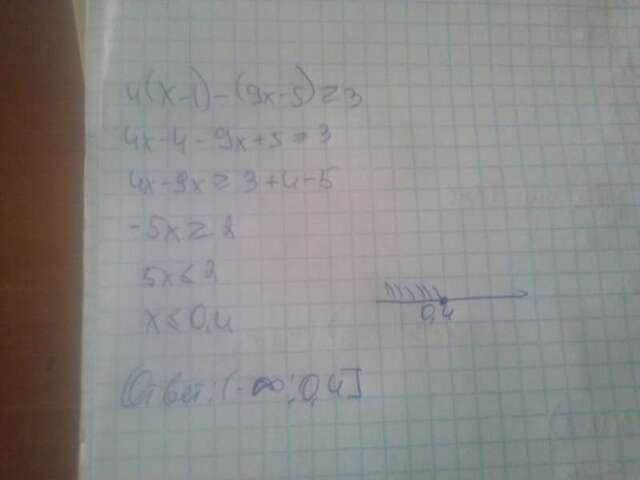 4(x-1)-(9x-5)≥3
4x-4-9x+5≥3
4x-9x≥3+4-5
-5x≥2
5x≤2
x≤0,4
0,4
Ответ: (-∞; 0,4]